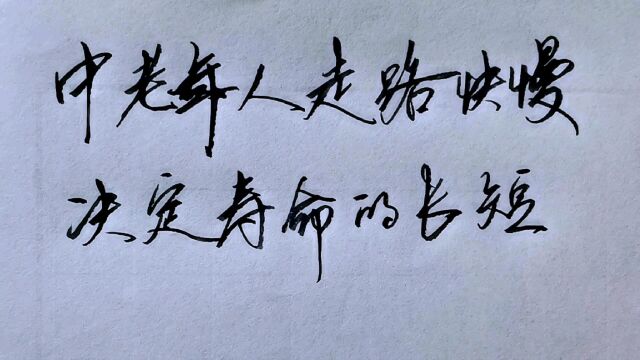 中老年人走路快慢
决定寿命的长短